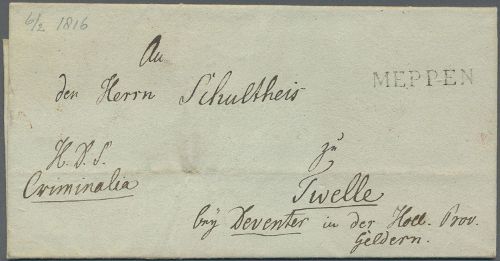 6/2 1816
An
den Herrn Schultheis
MEPPEN
H. D. S.
Criminalia
zu
Twelle
bey Deventer in der Holl. Prov.
Geldern.